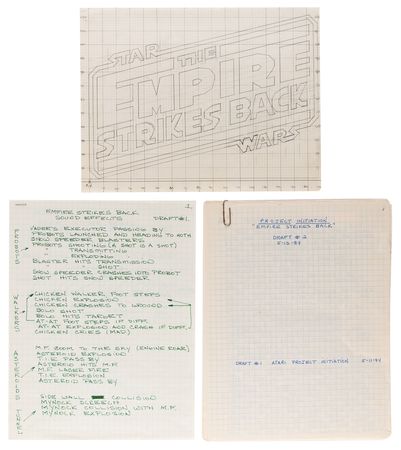 STAR
THE
EMPIRE
STRIKES BACK
WARS
1
EMPIRE STRIKES BACK
SOUND EFFECTS DRAFT #1.
VADER'S EXECUTOR PASSING BY
PROBOTS LAUNCHED AND HEADING TO HOTH
SNOW SPEEDER BLASTERS
PROBOTS SHOOTING (A SHOT IS A SHOT)
" TRANSMITTING
" EXPLODING
BLASTER HITS TRANSMISSION
" " SHOT
SNOW SPEEDER CRASHES INTO PROBOT
SHOT HITS SNOW SPEEDER
CHICKEN WALKER FOOT STEPS
CHICKEN EXPLOSION
CHICKEN CRASHES TO GROUND
BOLO SHOT
BOLO HITS TARGET
AT-AT FOOT STEPS IF DIFF.
AT-AT EXPLOSION AND CRASH IF DIFF.
CHICKEN CRIES (MAD)
M.F. ZOOM TO THE SKY (ENGINE ROAR)
ASTEROID EXPLOSION
T.I.E. PASS BY
ASTEROID HITS M.F.
M.F. LASER FIRE
T.I.E. EXPLOSION
ASTEROID PASS BY
SIDE WALL COLLISION
MYNOCK SCREECH
MYNOCK COLLISION WITH M.F.
MYNOCK EXPLOSION
PROJECT INITIATION
"EMPIRE STRIKES BACK"
DRAFT # 2
DRAFT #1 ATARI PROJECT INITIATION 5-11-84